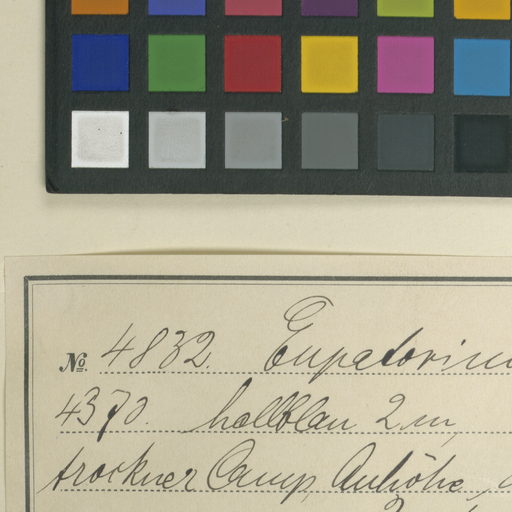 No. 4832. Eupatorium
4370. hellblau 2 m,
trockner Camp, Anhöhe,